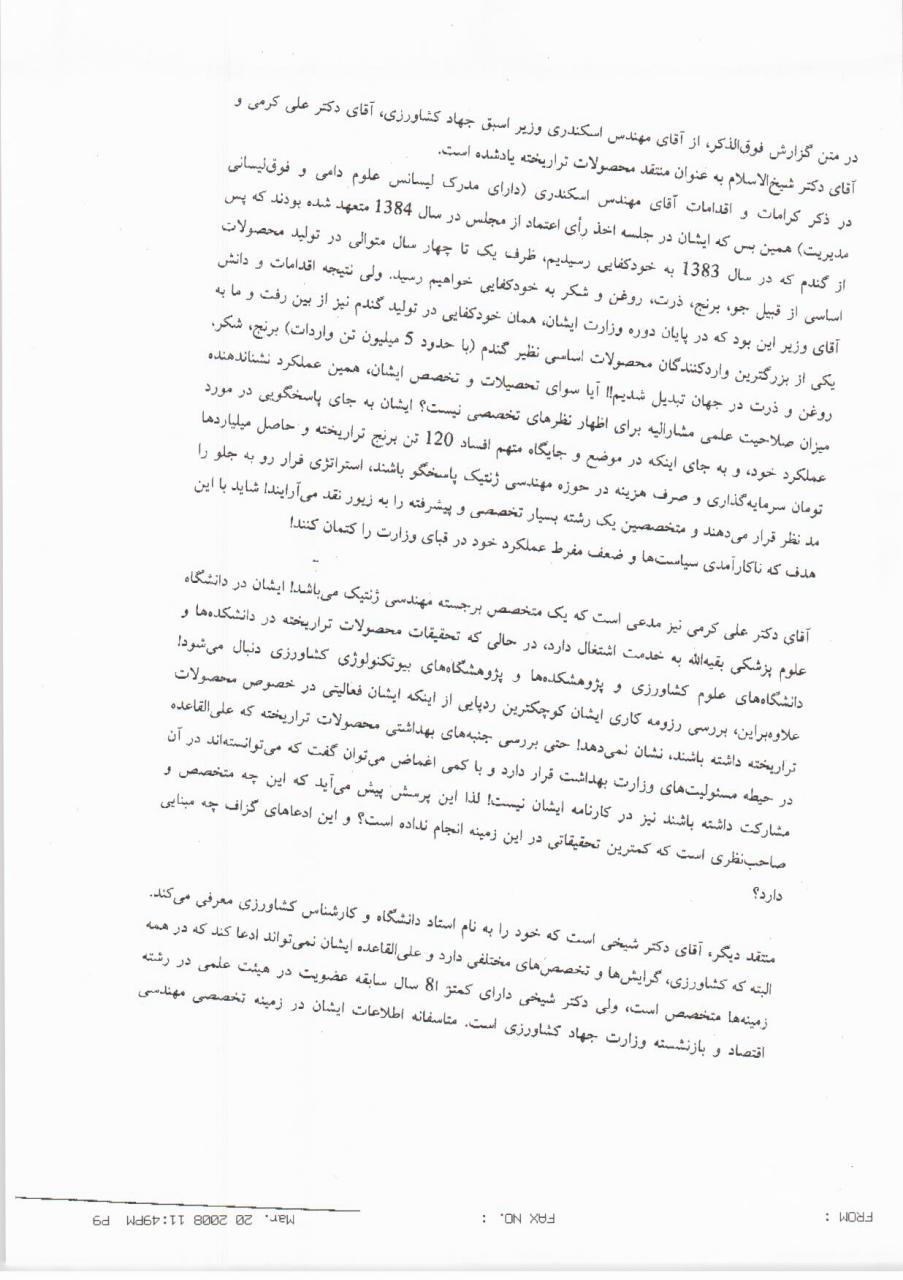 در متن گزارش فوق‌الذکر، از آقای مهندس اسکندری وزیر اسبق جهاد کشاورزی، آقای دکتر علی کرمی و
آقای دکتر شیخ‌الاسلام به عنوان منتقد محصولات تراریخته یادشده است.
در ذکر کرامات و اقدامات آقای مهندس اسکندری (دارای مدرک لیسانس علوم دامی و فوق‌لیسانی
مدیریت) همین بس که ایشان در جلسه اخذ رأی اعتماد از مجلس در سال 1384 متعهد شده بودند که پس
از گندم که در سال 1383 به خودکفایی رسیدیم، ظرف یک تا چهار سال متوالی در تولید محصولات
اساسی از قبیل جو، برنج، ذرت، روغن و شکر به خودکفایی خواهیم رسید. ولی نتیجه اقدامات و دانش
آقای وزیر این بود که در پایان دوره وزارت ایشان، همان خودکفایی در تولید گندم نیز از بین رفت و ما به
یکی از بزرگترین واردکنندگان محصولات اساسی نظیر گندم (با حدود 5 میلیون تن واردات) برنج، شکر،
روغن و ذرت در جهان تبدیل شدیم!! آیا سوای تحصیلات و تخصص ایشان، همین عملکرد نشناندهنده
میزان صلاحیت علمی مشارالیه برای اظهار نظرهای تخصصی نیست؟ ایشان به جای پاسخگویی در مورد
عملکرد خود، و به جای اینکه در موضع و جایگاه متهم افساد 120 تن برنج تراریخته و حاصل میلیاردها
تومان سرمایه‌گذاری و صرف هزینه در حوزه مهندسی ژنتیک پاسخگو باشند، استراتژی فرار رو به جلو را
مد نظر قرار می‌دهند و متخصصین یک رشته بسیار تخصصی و پیشرفته را به زیور نقد می‌آرایند! شاید با این
هدف که ناکارآمدی سیاست‌ها و ضعف مفرط عملکرد خود در قبای وزارت را کتمان کنند!
آقای دکتر علی کرمی نیز مدعی است که یک متخصص برجسته مهندسی ژنتیک می‌باشد! ایشان در دانشگاه
علوم پزشکی بقیه‌الله به خدمت اشتغال دارد، در حالی که تحقیقات محصولات تراریخته در دانشکده‌ها و
دانشگاه‌های علوم کشاورزی و پژوهشکده‌ها و پژوهشگاه‌های بیوتکنولوژی کشاورزی دنبال می‌شود!
علاوه‌براین، بررسی رزومه کاری ایشان کوچکترین ردپایی از اینکه ایشان فعالیتی در خصوص محصولات
تراریخته داشته باشند، نشان نمی‌دهد! حتی بررسی جنبه‌های بهداشتی محصولات تراریخته که علی‌القاعده
در حیطه مسئولیت‌های وزارت بهداشت قرار دارد و با کمی اغماض می‌توان گفت که می‌توانسته‌اند در آن
مشارکت داشته باشند نیز در کارنامه ایشان نیست! لذا این پرسش پیش می‌آید که این چه متخصص و
صاحب‌نظری است که کمترین تحقیقاتی در این زمینه انجام نداده است؟ و این ادعاهای گزاف چه مبنایی
دارد؟
منتقد دیگر، آقای دکتر شیخی است که خود را به نام استاد دانشگاه و کارشناس کشاورزی معرفی می‌کند.
البته که کشاورزی، گرایش‌ها و تخصص‌های مختلفی دارد و علی‌القاعده ایشان نمی‌تواند ادعا کند که در همه
زمینه‌ها متخصص است، ولی دکتر شیخی دارای سال سابقه عضویت در هیئت علمی در رشته
اقتصاد و بازنشسته وزارت جهاد کشاورزی است. متاسفانه اطلاعات ایشان در زمینه تخصصی مهندسی
FROM : FAX NO. : Mar. 20 2008 11:49PM P9